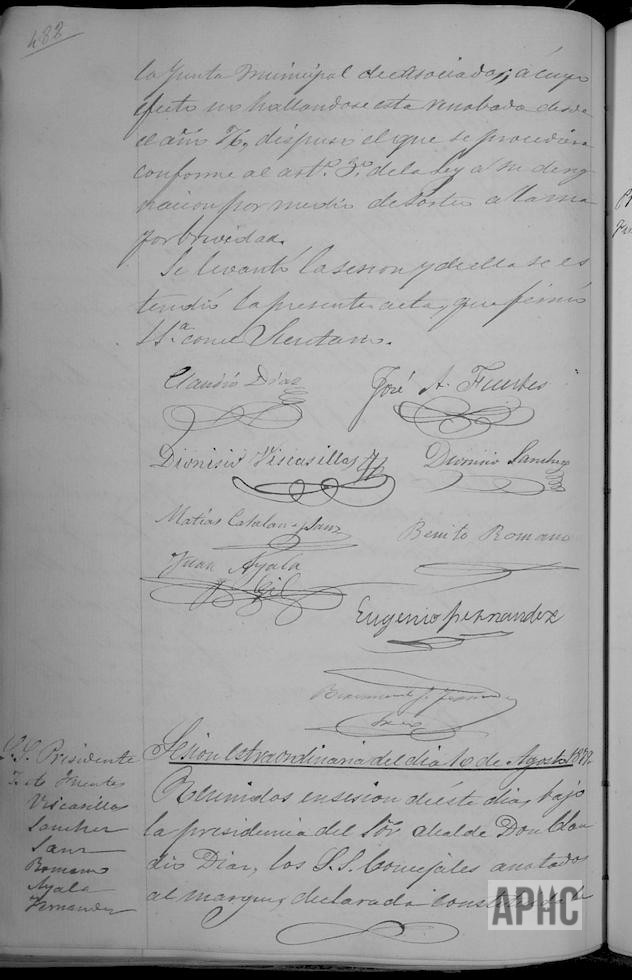 482
la Junta Municipal de Asociados, á cuyo
efecto no hallandose esta renobada desde
el año 76, dispuso el que se procediera
conforme al artº 3º de la Ley á su desig
nacion por medio de sorteo a la ma
yor brevedad.
Se levantó la sesion y de ella se es
tendió la presente acta, que firmó
S.Sª con el Secretario.
Claudio Diaz
José A. Fuertes
Dionisio Viscasillas
Dionisio Sanchez
Matías Catalan y Sanz
Benito Romano
Juan Ayala
Gil
Eugenio Fernandez
Sesion Extraordinaria del dia 16 de Agosto 1879.
S.S. Presidente
Fuertes
Viscasillas
Sanchez
Sanz
Romano
Ayala
Fernandez
Reunidos en sesion de éste dia, bajo
la presidencia del Sor Alcalde Don Clau
dio Diaz, los S.S. Concejales anotados
al margen, declarada
APHC